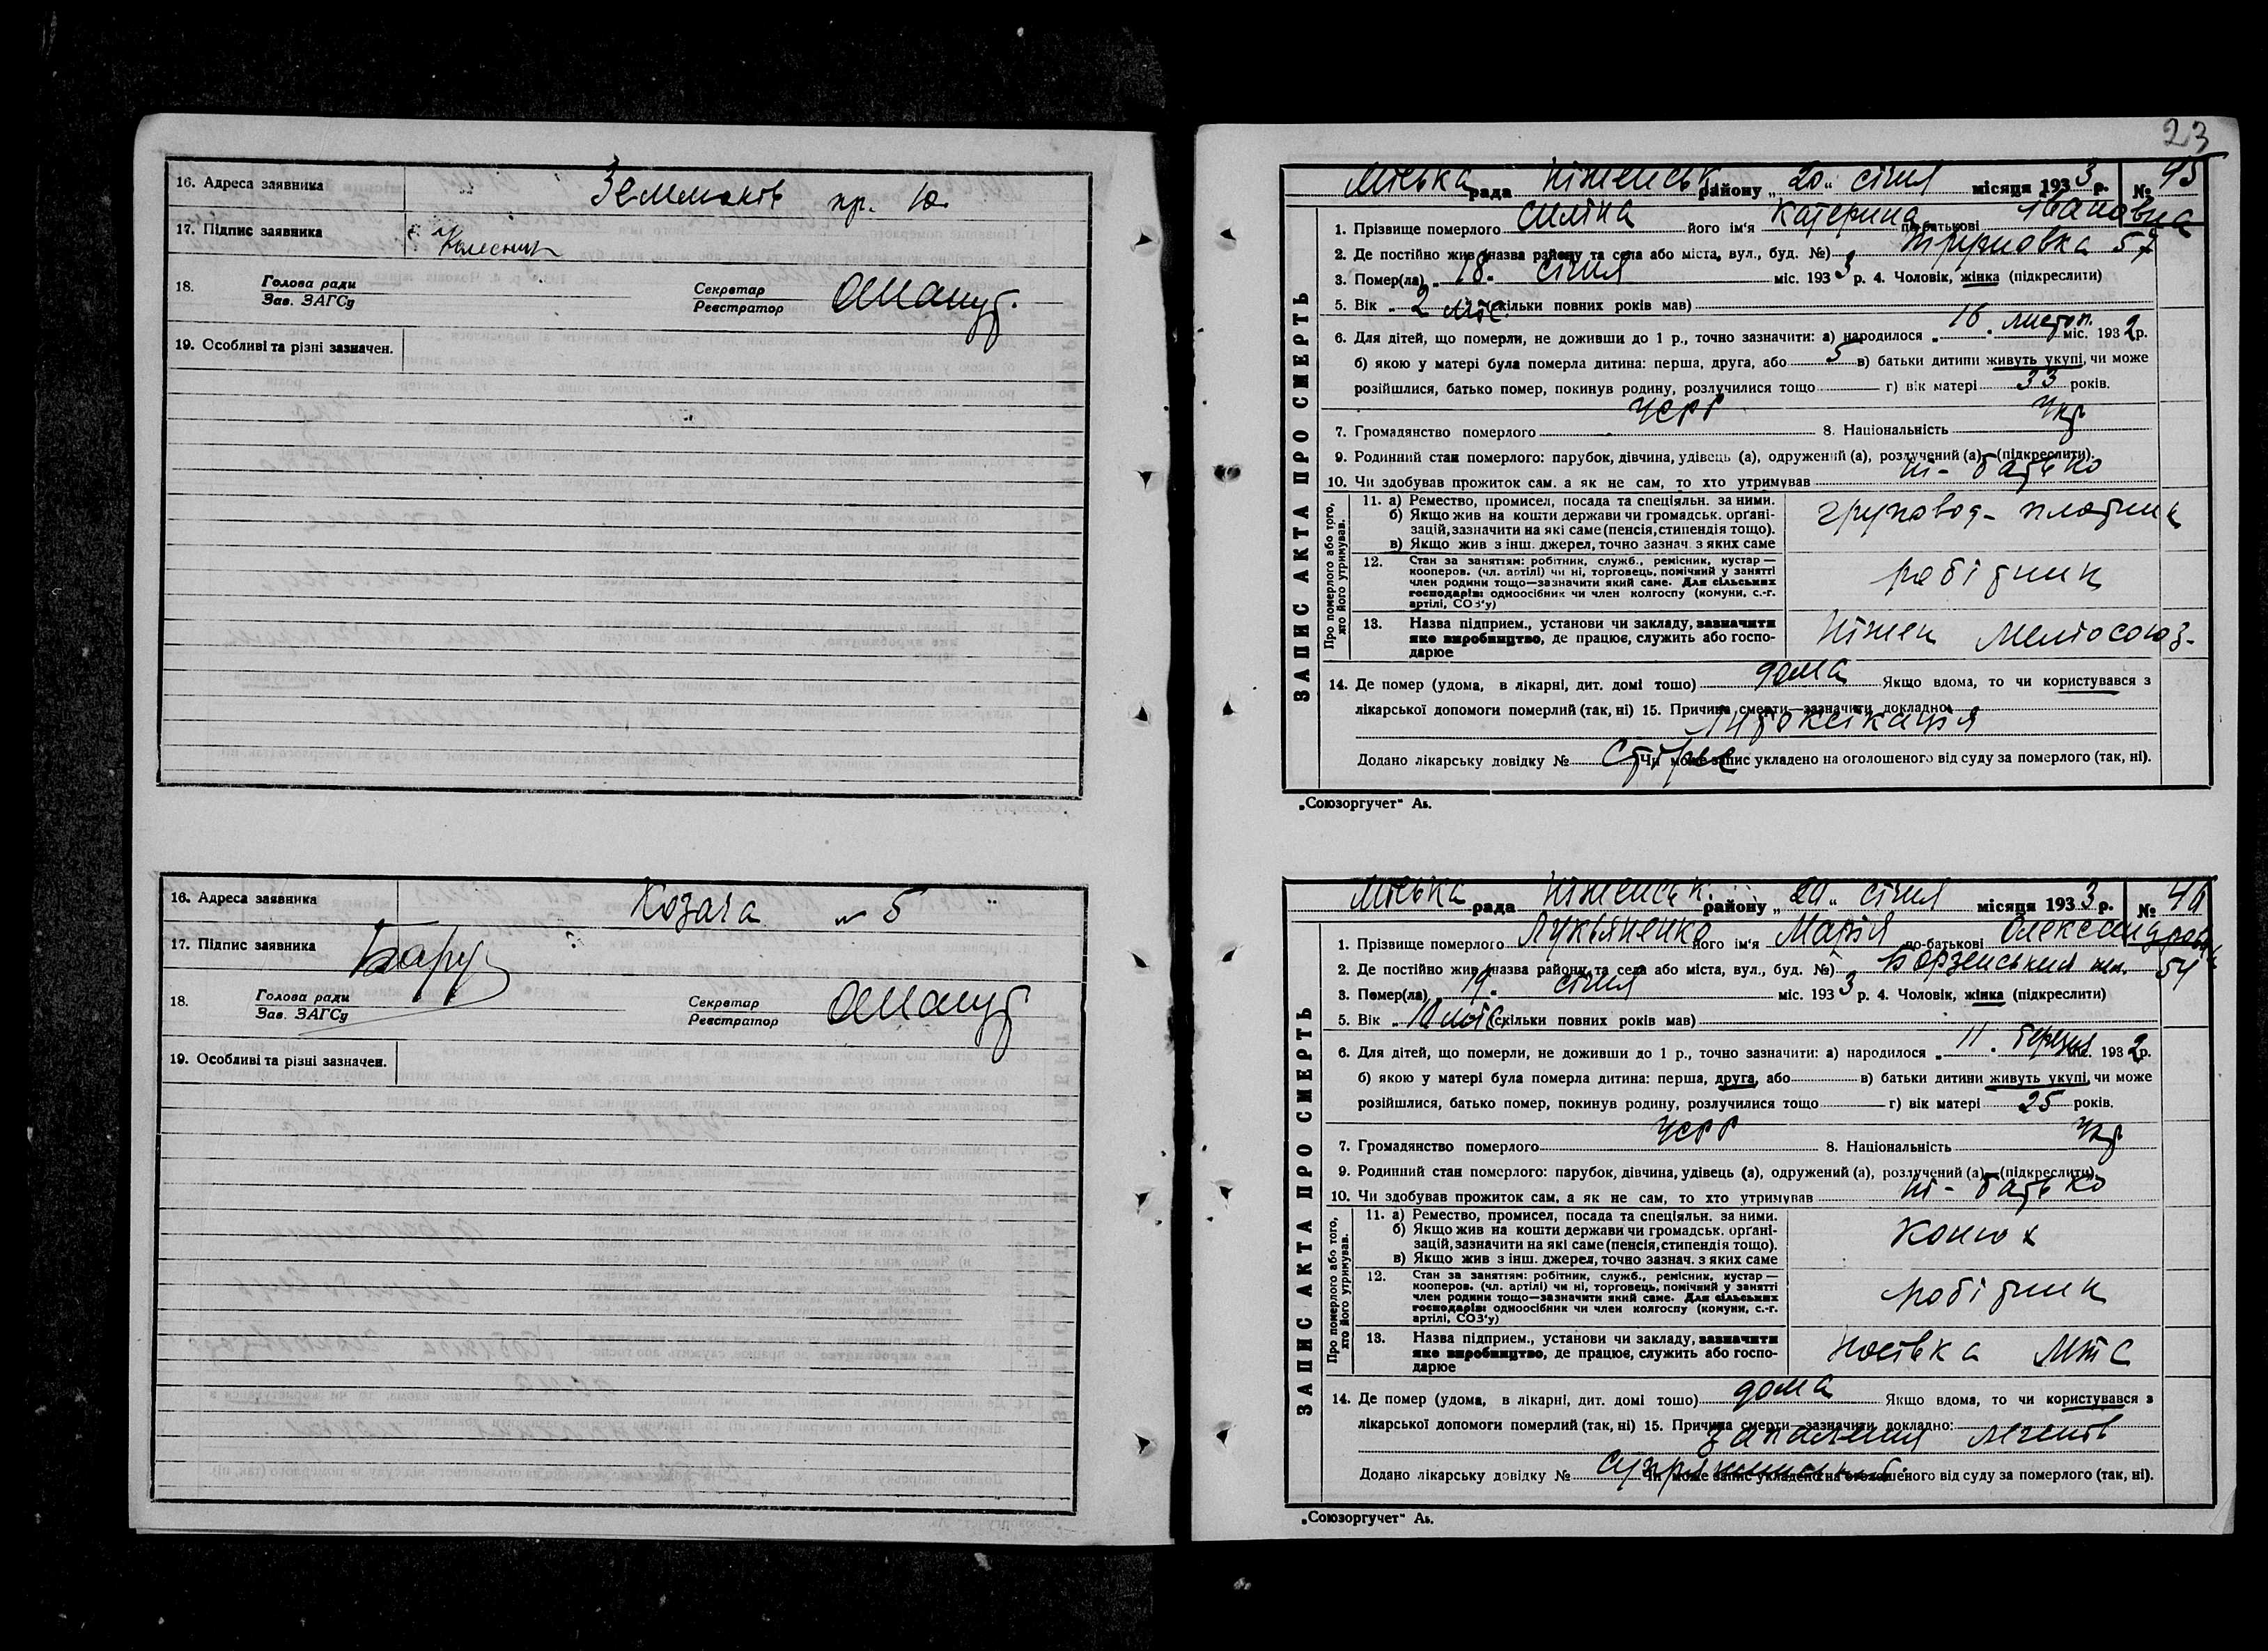 16. Адреса заявника
Земмонів пр. 10.
17. Підпис заявника
Колесник
18. Голова ради
Зав. ЗАГСу
Секретар
Реєстратор
19. Особливі та різні зазначен.
16. Адреса заявника
Козача № 5
17. Підпис заявника
18. Голова ради
Зав. ЗАГСу
Секретар
Реєстратор
19. Особливі та різні зазначен.
23
Міська рада Ніженськ. району „20“ січня місяця 1933 р. № 45
ЗАПИС АКТА ПРО СМЕРТЬ
1. Прізвище померлого його ім'я Катерина по-батькові Івановна
2. Де постійно жив (назва району та села або міста, вул., буд. №) 57
3. Помер(ла) „18“ січня міс. 1933 р. 4. Чоловік, жінка (підкреслити)
5. Вік „2 міс. (скільки повних років мав)
6. Для дітей, що померли, не доживши до 1 р., точно зазначити: а) народилося „16“ листоп. міс. 1932 р.
б) якою у матері була померла дитина: перша, друга, або 5 в) батьки дитини живуть укупі, чи може
розійшлися, батько помер, покинув родину, розлучилися тощо г) вік матері 33 років.
7. Громадянство померлого УСРР 8. Національність Укр
9. Родинний стан померлого: парубок, дівчина, удівець (а), одружений (а), розлучений (а) (підкреслити).
10. Чи здобував прожиток сам, а як не сам, то хто утримував ні - батько
Про померлого або того, хто його утримував.
11. а) Ремество, промисел, посада та спеціяльн. за ними.
б) Якщо жив на кошти держави чи громадськ. органі-
зацій, зазначити на які саме (пенсія, стипендія тощо).
в) Якщо жив з інш. джерел, точно зазнач. з яких саме
груповод - плотник
12. Стан за заняттям: робітник, служб., ремісник, кустар —
кооперов. (чл. артілі) чи ні, торговець, помічний у занятті
член родини тощо—зазначити який саме. Для сільських
господарів: одноосібник чи член колгоспу (комуни, с.-г.
артілі, СОЗ'у)
робітник
13. Назва підприєм., установи чи закладу, зазначити
яке виробництво, де працює, служить або госпо-
дарює
Ніжен Меліосоюз-
14. Де помер (удома, в лікарні, дит. домі тошо) дома Якщо вдома, то чи користувався з
лікарської допомоги померлий (так, ні) 15. Причина смерти—зазначити докладно:
Інтоксікація
Додано лікарську довідку № Чи може запис укладено на оголошеного від суду за померлого (так, ні).
„Союзоргучет“ Аь.
Міська рада Ніженськ. району „20“ січня місяця 1933 р. № 46
ЗАПИС АКТА ПРО СМЕРТЬ
1. Прізвище померлого Лукьяненко його ім'я Марія по-батькові Олександровна
2. Де постійно жив (назва району та села або міста, вул., буд. №) Борзенський шл. 54
3. Помер(ла) „19“ січня міс. 1933 р. 4. Чоловік, жінка (підкреслити)
5. Вік „10 міс. (скільки повних років мав)
6. Для дітей, що померли, не доживши до 1 р., точно зазначити: а) народилося „11“ березня міс. 1932 р.
б) якою у матері була померла дитина: перша, друга, або в) батьки дитини живуть укупі, чи може
розійшлися, батько помер, покинув родину, розлучилися тощо г) вік матері 25 років.
7. Громадянство померлого УСРР 8. Національність Укр
9. Родинний стан померлого: парубок, дівчина, удівець (а), одружений (а), розлучений (а) (підкреслити).
10. Чи здобував прожиток сам, а як не сам, то хто утримував ні - батько
Про померлого або того, хто його утримував.
11. а) Ремество, промисел, посада та спеціяльн. за ними.
б) Якщо жив на кошти держави чи громадськ. органі-
зацій, зазначити на які саме (пенсія, стипендія тощо).
в) Якщо жив з інш. джерел, точно зазнач. з яких саме
конюх
12. Стан за заняттям: робітник, служб., ремісник, кустар —
кооперов. (чл. артілі) чи ні, торговець, помічний у занятті
член родини тощо—зазначити який саме. Для сільських
господарів: одноосібник чи член колгоспу (комуни, с.-г.
артілі, СОЗ'у)
робітник
13. Назва підприєм., установи чи закладу, зазначити
яке виробництво, де працює, служить або госпо-
дарює
Носівка МТС
14. Де помер (удома, в лікарні, дит. домі тошо) дома Якщо вдома, то чи користувався з
лікарської допомоги померлий (так, ні) 15. Причина смерти—зазначити докладно:
запалення легенів
Додано лікарську довідку № Чи може запис укладено на оголошеного від суду за померлого (так, ні).
„Союзоргучет“ Аь.